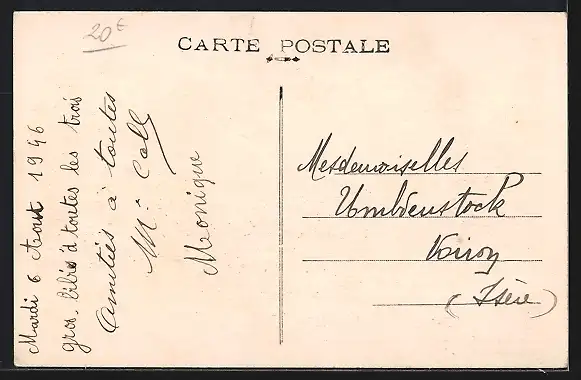 20€
CARTE POSTALE
Mardi 6 Aout 1946
gros bibis à toutes les trois
Amitiés à toutes
M. Coll
Monique
Mesdemoiselles
Umbdenstock
Viroy
(Isère)